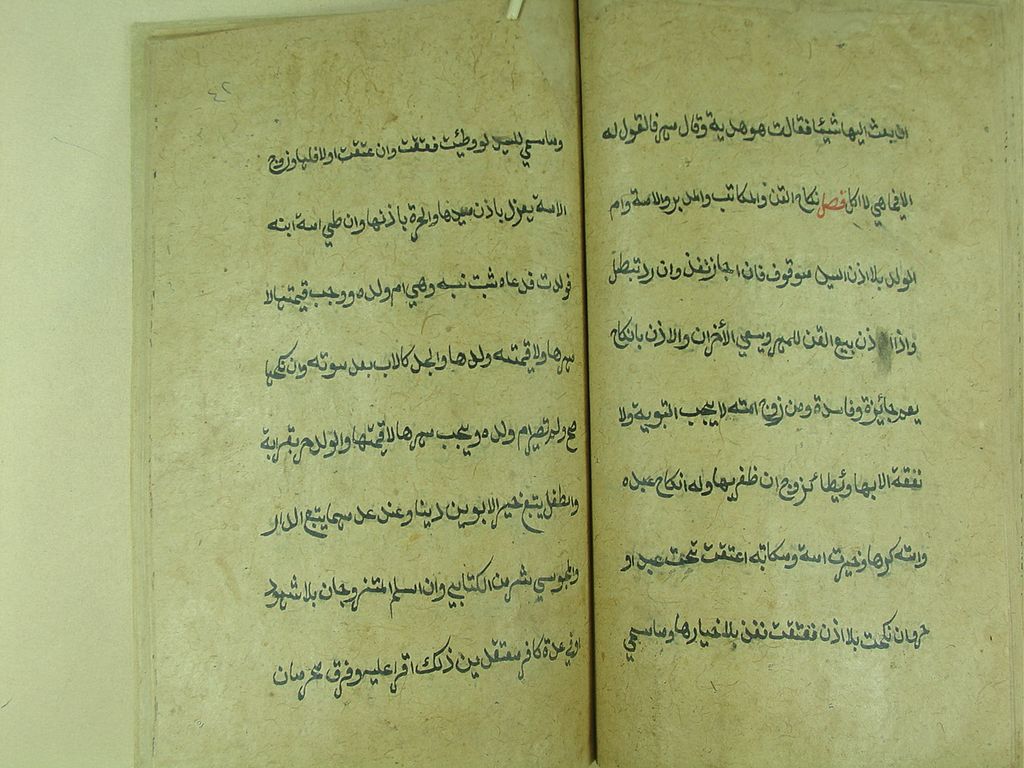 ان بعث اليها شيئا فقالت هو هدية وقال مهر فالقول له
الا فيما هي للاكل فصل نكاح القن والمكاتب والمدبر والامة وام
الولد بلا اذن السيد موقوف فان اجاز نفذ وان رد تبطل
واذا اذن بيع القن للمهر ويسعى الأخران والاذن بالنكاح
يعم جائزة وفاسدة ومن زوج امته لا يجب التبوية ولا
نفقة الا بها ويطأ زوج ان ظفر بها وله انكاح عبده
وامته كرها وخيرت امة ومكاتبه اعتقت تحت عبد او
حر وان نكحت بلا اذن فعتقت نفذ بلا خيارها وما سمي
٤٢
وما سمي للسيد لو وطئت فعتقت وان عتقت اولا فلها وزوج
الامة يعزل باذن سيدها والحرة باذنها وان طي امة ابنه
فولدت فدعاه ثبت نسبه وهي ام ولده ووجب قيمتها لا
مهرها ولا قيمته ولدها والجد كالاب بعد موته وان نكحها
صح ولم تصر ام ولده ويجب مهرها لا قيمتها والولد حر بقرابة
والطفل يتبع خير الابوين دينا وعند عدمهما يتبع الدار
والمجوسي شر من الكتابي وان اسلم المتزوجان بلا شهود
او في عدة كافر معتقدين ذلك اقرا عليه وفرق محرمان